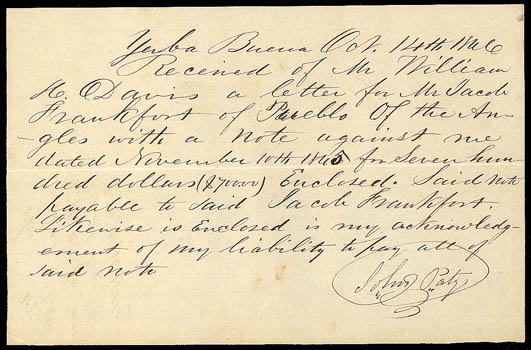 Yerba Buena Oct. 14th 1846
Received of Mr William
H. Davis a letter for Mr Jacob
Frankfort of Pueblo Of the An-
gles with a note against me
dated November 10th 1845 for Seven hun-
dred dollars ($700.00) Enclosed. Said note
payable to said Jacob Frankfort.
Likewise is Enclosed is my acknowledg-
ement of my liability to pay all of
said note
John Paty